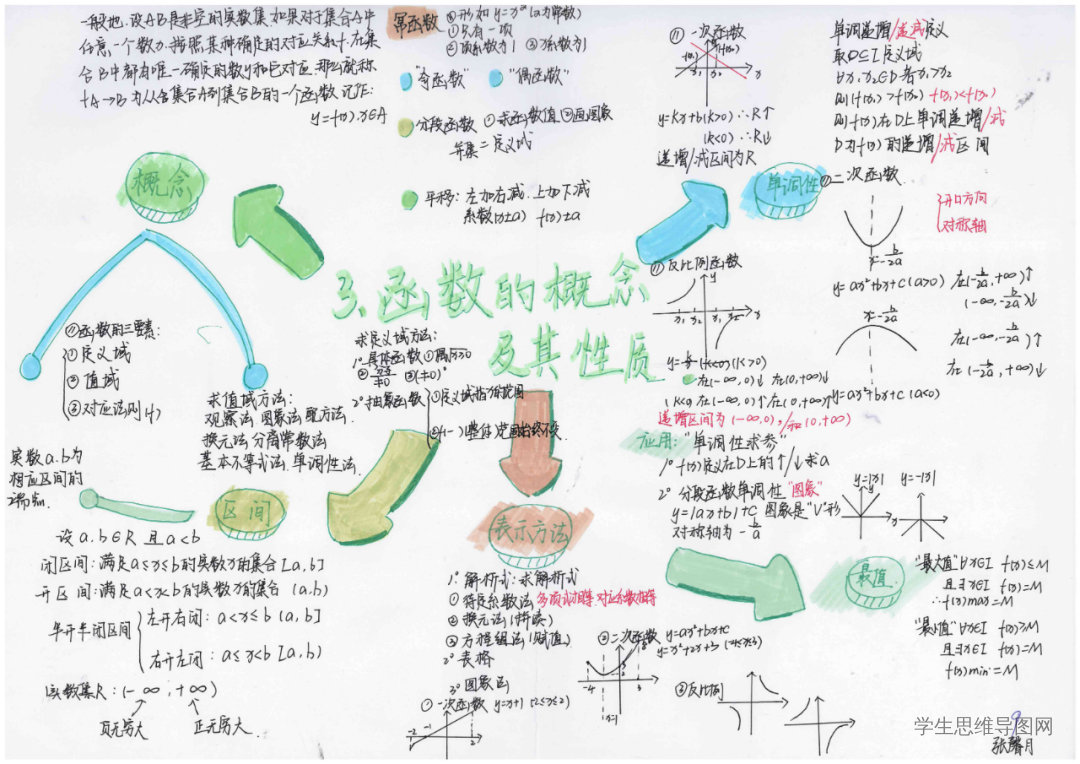 一般地,设A、B是非空的实数集,如果对于集合A中
任意一个数x,按照某种确定的对应关系f,在集
合B中都有唯一确定的数y和它对应,那么就称
f:A→B为从集合A到集合B的一个函数,记作:
y=f(x),x∈A
概念
幂函数
①只有一项
③x系数为1
"令函数" "偶函数"
分段函数 ①求函数值 ②画图象
并集=定义域
平移:左加右减,上加下减
系数(x±a) f(x)±a
(1)函数的三要素:
①定义域
②值域
③对应法则(f)
求值域方法:
观察法,图象法,配方法,
换元法,分离常数法
基本不等式法,单调性法
3、函数的概念
及其性质
求定义域方法:
1° 具体函数
2° 抽象函数
(1)一次函数
y=kx+b(k>0)∴R↑
(k<0)∴R↓
递增/减区间为R
单调性
单调递增/递减定义
取D⊆I定义域
∀x₁,x₂∈D 若x₁>x₂
则f(x₁)>f(x₂) f(x₁)<f(x₂)
则f(x)在D上单调递增/减
D为f(x)的递增/减区间
(2)二次函数
开口方向
对称轴
x=-b/2a
y=ax²+bx+c(a>0) 在(-b/2a,+∞)↑
(-∞,-b/2a)↓
x=-b/2a
在(-∞,-b/2a)↑
在(-b/2a,+∞)↓
y=ax²+bx+c(a<0)
(1)反比例函数
在(-∞,0)↓ 在(0,+∞)↓
(k<0)在(-∞,0)↑在(0,+∞)↑
递增区间为(-∞,0),/和(0,+∞)
应用:"单调性求参"
1° f(x)定义在D上的↑/↓求a
2° 分段函数单调性"图象"
y=|ax+b|+c 图象是"V"形
对称轴为-b/a
y=|x| y=-|x|
最值
"最大值"∀x∈I f(x)≤M
且∃x∈I f(x)=M
∴f(x)max=M
"最小值"∀x∈I f(x)≥M
且∃x∈I f(x)=M
f(x)min=M
实数a.b为
相应区间的
端点.
区间
设a,b∈R 且a<b
闭区间:满足a≤x≤b的实数x的集合[a,b]
开区间:满足a<x<b的实数x的集合(a,b)
半开半闭区间
左开右闭:a<x≤b (a,b]
右开左闭:a≤x<b [a,b)
实数集R:(-∞,+∞)
负无穷大 正无穷大
表示方法
1° 解析式:求解析式
①待定系数法 多项式相等,对应系数相等
②换元法(拼凑)
③方程组法(赋值)
2° 表格
3° 图象法
①一次函数 y=x+1
②二次函数 y=ax²+bx+c
③反比例
学生思维导图网